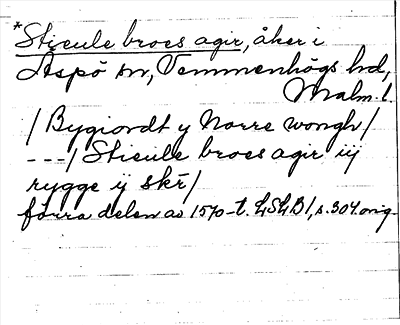 *Stieule broes agir, åker i
Aspö sn, Vemmenhögs hd,
Malm. l.
/ Bygiordt y Norre wongh /
---/ Stieule broes agir iij
rygge ij skr̄ /
förra delen av 1570-t. LSLB1, s. 304. orig.